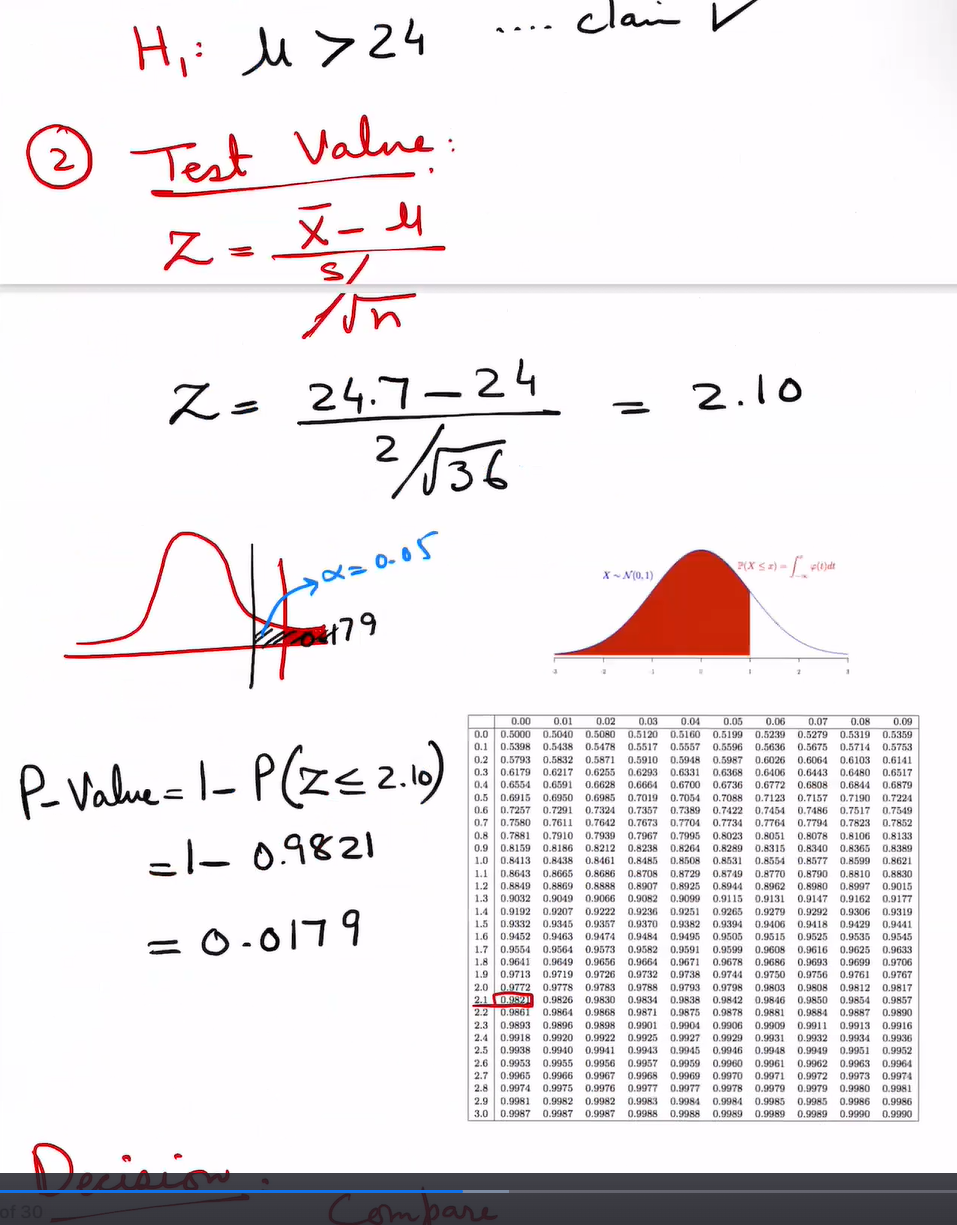 H₁: μ > 24 .... claim ✓
② Test Value:
Z = x̄ - μ
s/
√n
Z = 24.7 - 24 = 2.10
2/√36
α = 0.05
0.0179
X ~ N(0, 1)
ℙ(X ≤ x) = ∫ φ(t)dt
-∞
-3 -2 -1 0 1 2 3
P-Value = 1 - P(Z ≤ 2.10)
= 1 - 0.9821
= 0.0179
0.00 0.01 0.02 0.03 0.04 0.05 0.06 0.07 0.08 0.09
0.0 0.5000 0.5040 0.5080 0.5120 0.5160 0.5199 0.5239 0.5279 0.5319 0.5359
0.1 0.5398 0.5438 0.5478 0.5517 0.5557 0.5596 0.5636 0.5675 0.5714 0.5753
0.2 0.5793 0.5832 0.5871 0.5910 0.5948 0.5987 0.6026 0.6064 0.6103 0.6141
0.3 0.6179 0.6217 0.6255 0.6293 0.6331 0.6368 0.6406 0.6443 0.6480 0.6517
0.4 0.6554 0.6591 0.6628 0.6664 0.6700 0.6736 0.6772 0.6808 0.6844 0.6879
0.5 0.6915 0.6950 0.6985 0.7019 0.7054 0.7088 0.7123 0.7157 0.7190 0.7224
0.6 0.7257 0.7291 0.7324 0.7357 0.7389 0.7422 0.7454 0.7486 0.7517 0.7549
0.7 0.7580 0.7611 0.7642 0.7673 0.7704 0.7734 0.7764 0.7794 0.7823 0.7852
0.8 0.7881 0.7910 0.7939 0.7967 0.7995 0.8023 0.8051 0.8078 0.8106 0.8133
0.9 0.8159 0.8186 0.8212 0.8238 0.8264 0.8289 0.8315 0.8340 0.8365 0.8389
1.0 0.8413 0.8438 0.8461 0.8485 0.8508 0.8531 0.8554 0.8577 0.8599 0.8621
1.1 0.8643 0.8665 0.8686 0.8708 0.8729 0.8749 0.8770 0.8790 0.8810 0.8830
1.2 0.8849 0.8869 0.8888 0.8907 0.8925 0.8944 0.8962 0.8980 0.8997 0.9015
1.3 0.9032 0.9049 0.9066 0.9082 0.9099 0.9115 0.9131 0.9147 0.9162 0.9177
1.4 0.9192 0.9207 0.9222 0.9236 0.9251 0.9265 0.9279 0.9292 0.9306 0.9319
1.5 0.9332 0.9345 0.9357 0.9370 0.9382 0.9394 0.9406 0.9418 0.9429 0.9441
1.6 0.9452 0.9463 0.9474 0.9484 0.9495 0.9505 0.9515 0.9525 0.9535 0.9545
1.7 0.9554 0.9564 0.9573 0.9582 0.9591 0.9599 0.9608 0.9616 0.9625 0.9633
1.8 0.9641 0.9649 0.9656 0.9664 0.9671 0.9678 0.9686 0.9693 0.9699 0.9706
1.9 0.9713 0.9719 0.9726 0.9732 0.9738 0.9744 0.9750 0.9756 0.9761 0.9767
2.0 0.9772 0.9778 0.9783 0.9788 0.9793 0.9798 0.9803 0.9808 0.9812 0.9817
2.1 0.9821 0.9826 0.9830 0.9834 0.9838 0.9842 0.9846 0.9850 0.9854 0.9857
2.2 0.9861 0.9864 0.9868 0.9871 0.9875 0.9878 0.9881 0.9884 0.9887 0.9890
2.3 0.9893 0.9896 0.9898 0.9901 0.9904 0.9906 0.9909 0.9911 0.9913 0.9916
2.4 0.9918 0.9920 0.9922 0.9925 0.9927 0.9929 0.9931 0.9932 0.9934 0.9936
2.5 0.9938 0.9940 0.9941 0.9943 0.9945 0.9946 0.9948 0.9949 0.9951 0.9952
2.6 0.9953 0.9955 0.9956 0.9957 0.9959 0.9960 0.9961 0.9962 0.9963 0.9964
2.7 0.9965 0.9966 0.9967 0.9968 0.9969 0.9970 0.9971 0.9972 0.9973 0.9974
2.8 0.9974 0.9975 0.9976 0.9977 0.9977 0.9978 0.9979 0.9979 0.9980 0.9981
2.9 0.9981 0.9982 0.9982 0.9983 0.9984 0.9984 0.9985 0.9985 0.9986 0.9986
3.0 0.9987 0.9987 0.9987 0.9988 0.9988 0.9989 0.9989 0.9989 0.9990 0.9990
Decision:
Compare
of 30